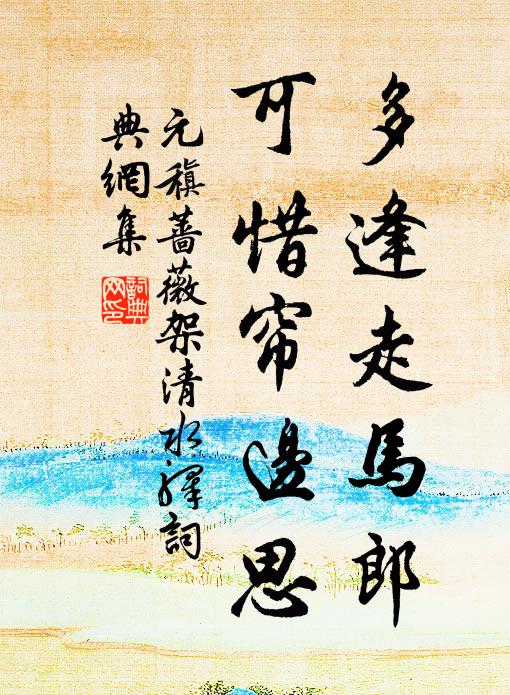 多逢走馬郎
可惜帘邊思
元稹薔薇架清水驛詞
典網集
詞典网印